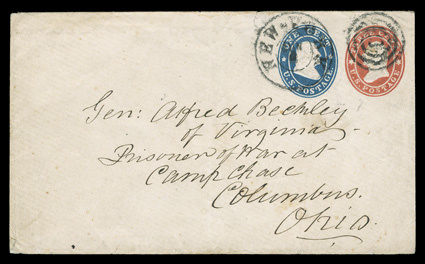 ONE CENT
U.S. POSTAGE
NEW-
U.S. POSTAGE
Gen: Alfred Beckley
of Virginia -
Prisoner of War at
Camp Chase
Columbus.
Ohio.